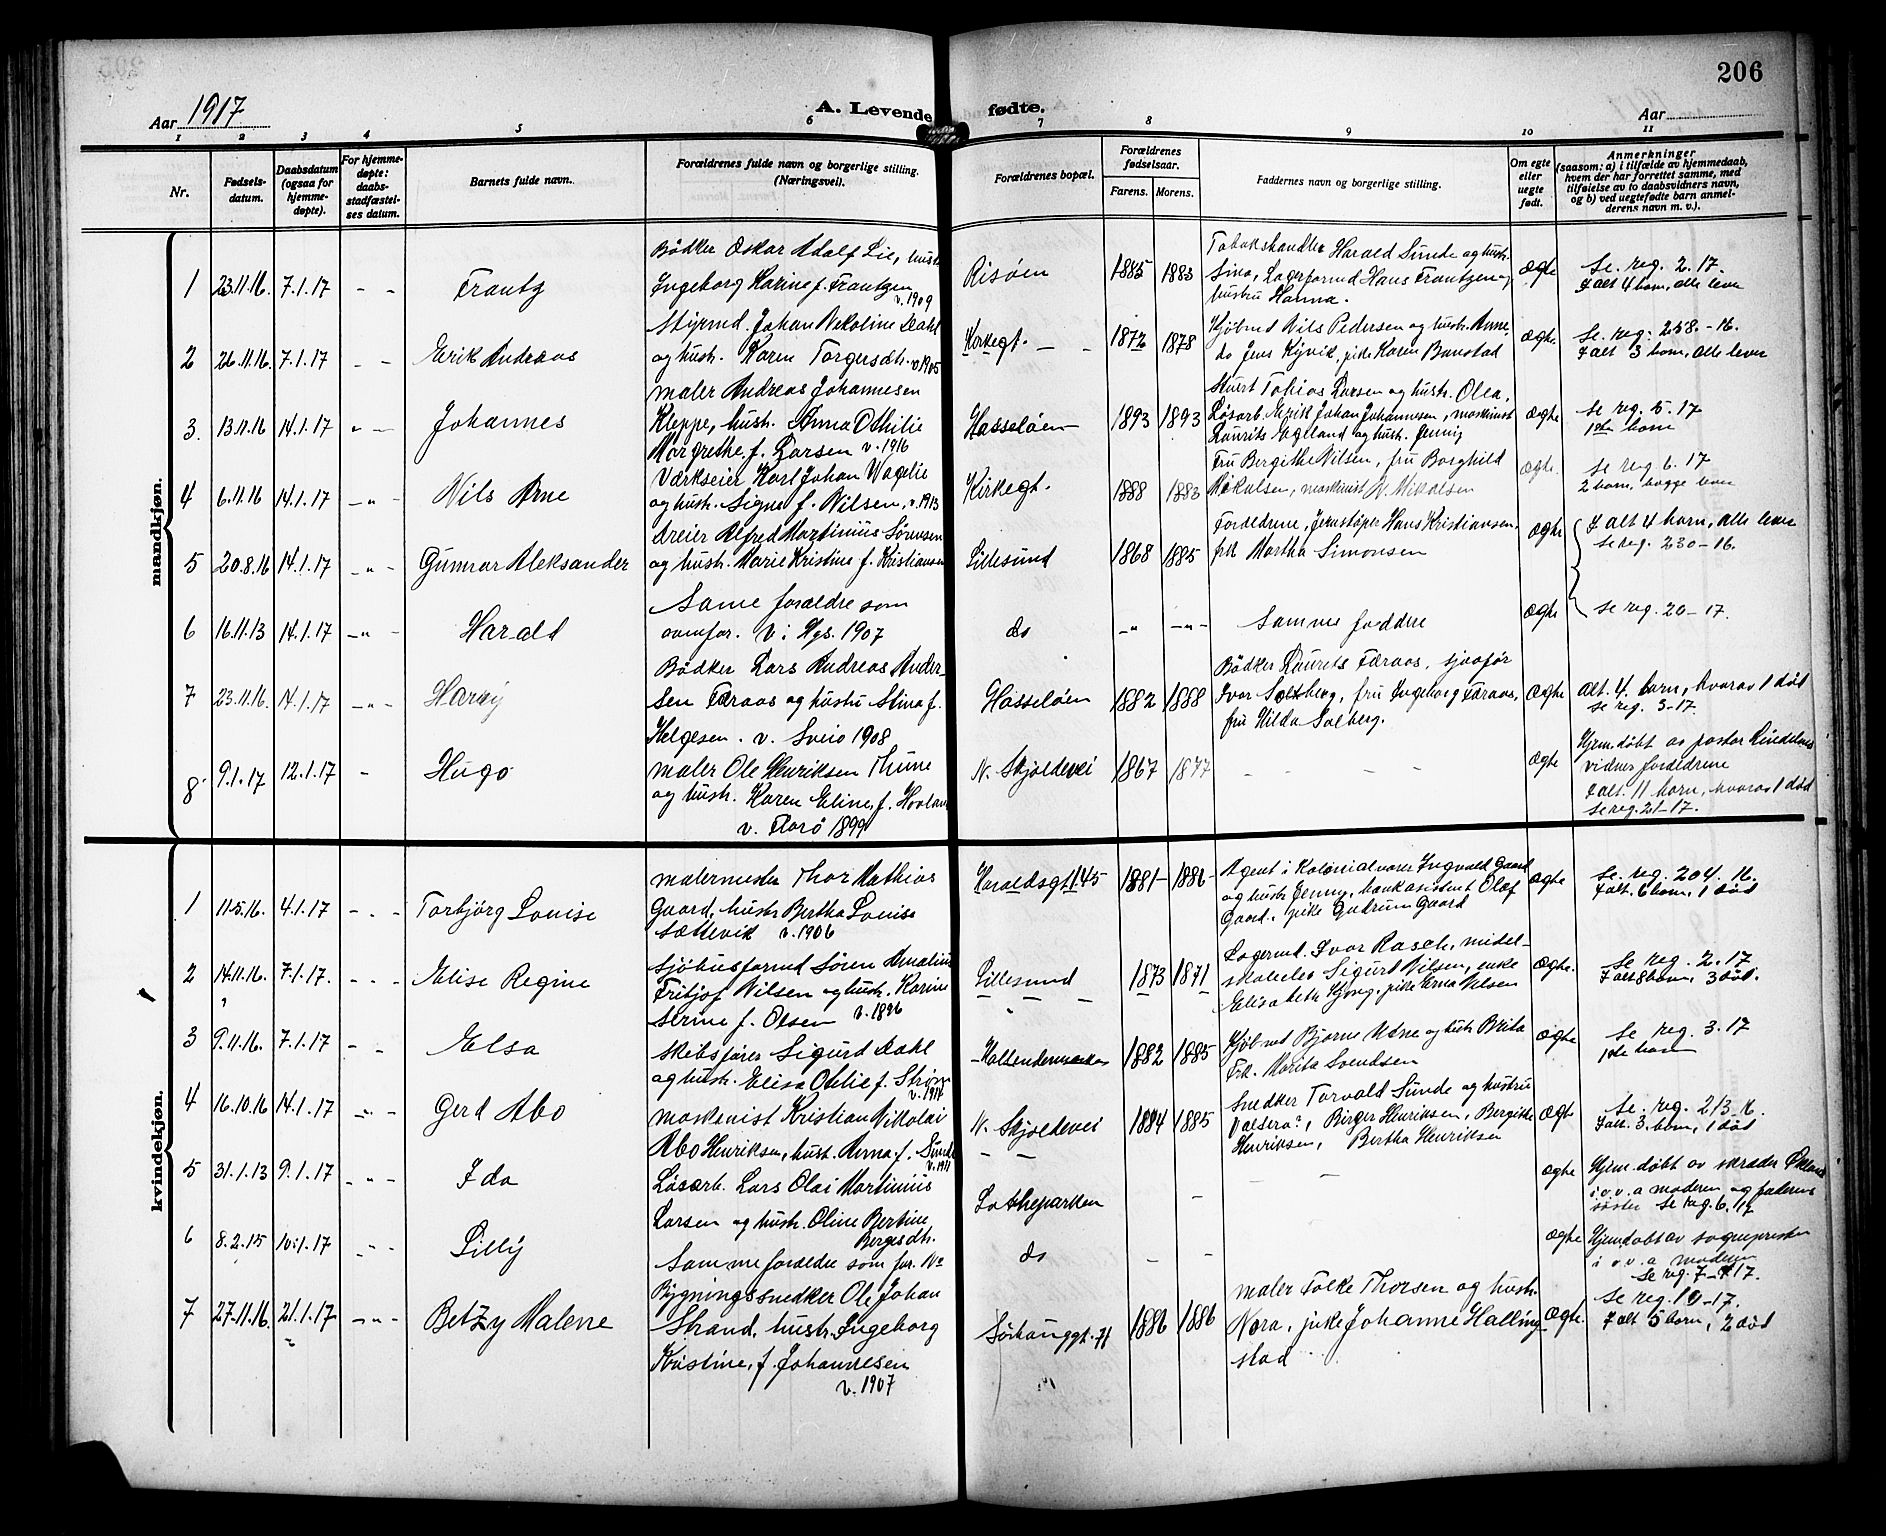 206
Aar 1917
A. Levende fødte.
Aar
1 2 3 4 5 6 7 8 9 10 11
Nr.
Fødsels-
datum.
Daabsdatum
(ogsaa for
hjemme-
døpte).
For hjemme-
døpte:
daabs-
stadfæstel-
ses datum.
Barnets fulde navn.
Forældrenes fulde navn og borgerlige stilling.
(Næringsvei).
Forældrenes bopæl.
Forældrenes
fødselsaar.
Farens. Morens.
Faddernes navn og borgerlige stilling.
Om egte
eller
uegte
født.
Anmerkninger
(saasom: a) i tilfælde av hjemmedaab,
hvem der har forrettet samme, med
tilføielse av to daabsvidners navn,
og b) ved uegtefødte barn anmel-
derens navn m. v.).
mandkjøn.
1 23.11.16. 7.1.17 - - Frantz
Bødker Oskar Adolf Lie, hustr.
Ingeborg Karine f. Frantzen
v. 1909
Risøen 1885 1883
Tobakshandler Harald Sunde og hustr.
Sina, Lagerformd Hans Frantzen og
hustru Hanna.
ægte
Se. reg. 2.17.
I alt 4 barn, alle lever
2 26.11.16. 7.1.17 - - Erik Andreas
Styrmd. Johan Nekoline Dahl
og hustr. Karen Torgersdtr. v. 1905
Kirkegt. - - 1872 1878
Kjøbmd Nils Pedersen og hustr. Anne,
do Jens Kyvik, pike Karen
ægte.
Se. reg. 258.-16.
I alt 3 barn, alle lever
3. 13.11.16 14.1.17 " - Johannes
maler Andreas Johannesen
Kleppe, hustr. Anna Othilie
Margrethe, f. Larsen v. 1916
Hasseløen 1893 1893
Tobias Larsen og hustr. Olea,
Løsarb. Erik Johan Johannesen, maskinist
Laurits Egeland og hustr. Jenny
ægte
Se reg. 5. 17
1ste barn
4 6.11.16 14.1.17 - " - Nils Arne
Værkseier Karl Johan Vagelie
og hustr. Signe f. Nilsen, v. 1913
Kirkegt. 1888 1883
Fru Bergithe Nilsen, fru Borghild
Mikalsen, maskinist N. Mikalsen
ægte.
Se reg 6. 17
2 barn, begge lever
5 20.8.16 14.1.17 - " - Gunnar Aleksander
dreier Alfred Martinius Sørensen
og hustr. Marie Kristine f. Kristiansen
Lillesund 1868 1885
Forældrene, Jernstøper Hans Kristiansen,
frk Martha Simonsen
ægte
I alt 4 barn, alle lever
se reg. 230-16.
6 16.11.13 14.1.17 - " - Harald
Same forældre som
ovenfor. V. i Hgs. 1907
do - " - " -
Samme faddere
ægte
Se reg. 20-17.
7 23.11.16. 14.1.17 - " - Harry
Bødker Lars Andreas Ander-
sen Færaas og hustru Stina f.
Helgesen. v. Sveio 1908
Hasseløen 1882 1888
Bødker Laurets Færaas, sjaafør
Ivar Solberg, fru Ingeborg Færaas,
fru Hilda Solberg.
ægte
alt. 4. barn, hvorav 1 død
se reg. 3-17.
8 9.1.17 12.1.17 - Hugo
maler Ole Henriksen Thune
og hustr. Karen Eline, f. Hovland
v. Florø 1899
N. Skjoldevei 1867 1877
- - - -
ægte
Hjem. døbt av pastor
vidner forældrene
I alt. 11 barn, hvorav 1 død
Se reg. 21-17.
kvindekjøn.
1 11.5.16. 4.1.17 - - - Torbjörg Louise
malermester Thor Mathias
Gaard, hustr Bertha Louise
Sættevik v. 1906
Haraldsgt. 145 1881 1886
Agent i Kolonialvarer Ingvald Gaard
og hustr Jenny, bankasistent Olaf
Gaard, pike Gudrun Gaard
ægte
Se. reg. 204. 16.
I alt. 6 barn, 1 død
2 14.11.16. 7.1.17. - - - Elise Regine
Sjøhusformd Søren Amalius
Fritjof Nilsen og hustr. Karine
Serine f. Olsen v. 1896
Lillesund 1873 1871
Lagermd. Ivar Rasch, midel-
skoleelev Sigurd Nilsen, enke
Elisabeth, pike Erna Nilsen
ægte.
Se reg. 2. 17
I alt 8 barn, 3 død.
3 9.11.16. 7.1.17 - - Elsa
Skibsfører Sigurd Dahl
og hustr. Elisa Othilie f. Strøm
v. 1914
1882 1885
Kjøbmd Bjarne og hustr Brita
Frk. Marita Svendsen
ægte
Se reg. 3. 17
1ste barn
4 16.10.16 14.1.17 - " - Gerd Abo
maskinist Kristian Nikolai
Abo Henriksen, hust. Anna f. Sunde
v. 1911
N. Skjoldevei 1884 1885
Snedker Torvald Sunde og hustru
Valsera?, Birger Henriksen, Bergithe
Henriksen, Bertha Henriksen
ægte
Se. reg. 213-16.
I alt. 3. barn, 1 død
5 31.1.13 9.1.17 - " - Ida
Løsarb. Lars Olai Martinius
Larsen og hustr. Oline Bertine
Bergesdtr.
Lotheparken - - -
ægte
Hjem. døbt av skræder
i o. v. a moderen og faderens
søster Se reg. 6. 17
6 8.2.15 10.1.17 - " - Lilly
Samme forældre som for. No
do - -
ægte
Hjemdøbt av sogneprest
i o v. a moderen
Se reg. 7-17.
7 27.11.16. 21.1.17 - " - Betzy Malene
Bygningssnedker Ole Johan
Strand, hustr. Ingeborg
Kristine, f. Johannesen
v. 1907
Sørhauggt. 71 1886 1886
maler Tolke Thorsen og hustr.
Nora, pike Johanne Halling-
stad
ægte.
Se reg. 10-17.
I alt 5 barn, 2 død